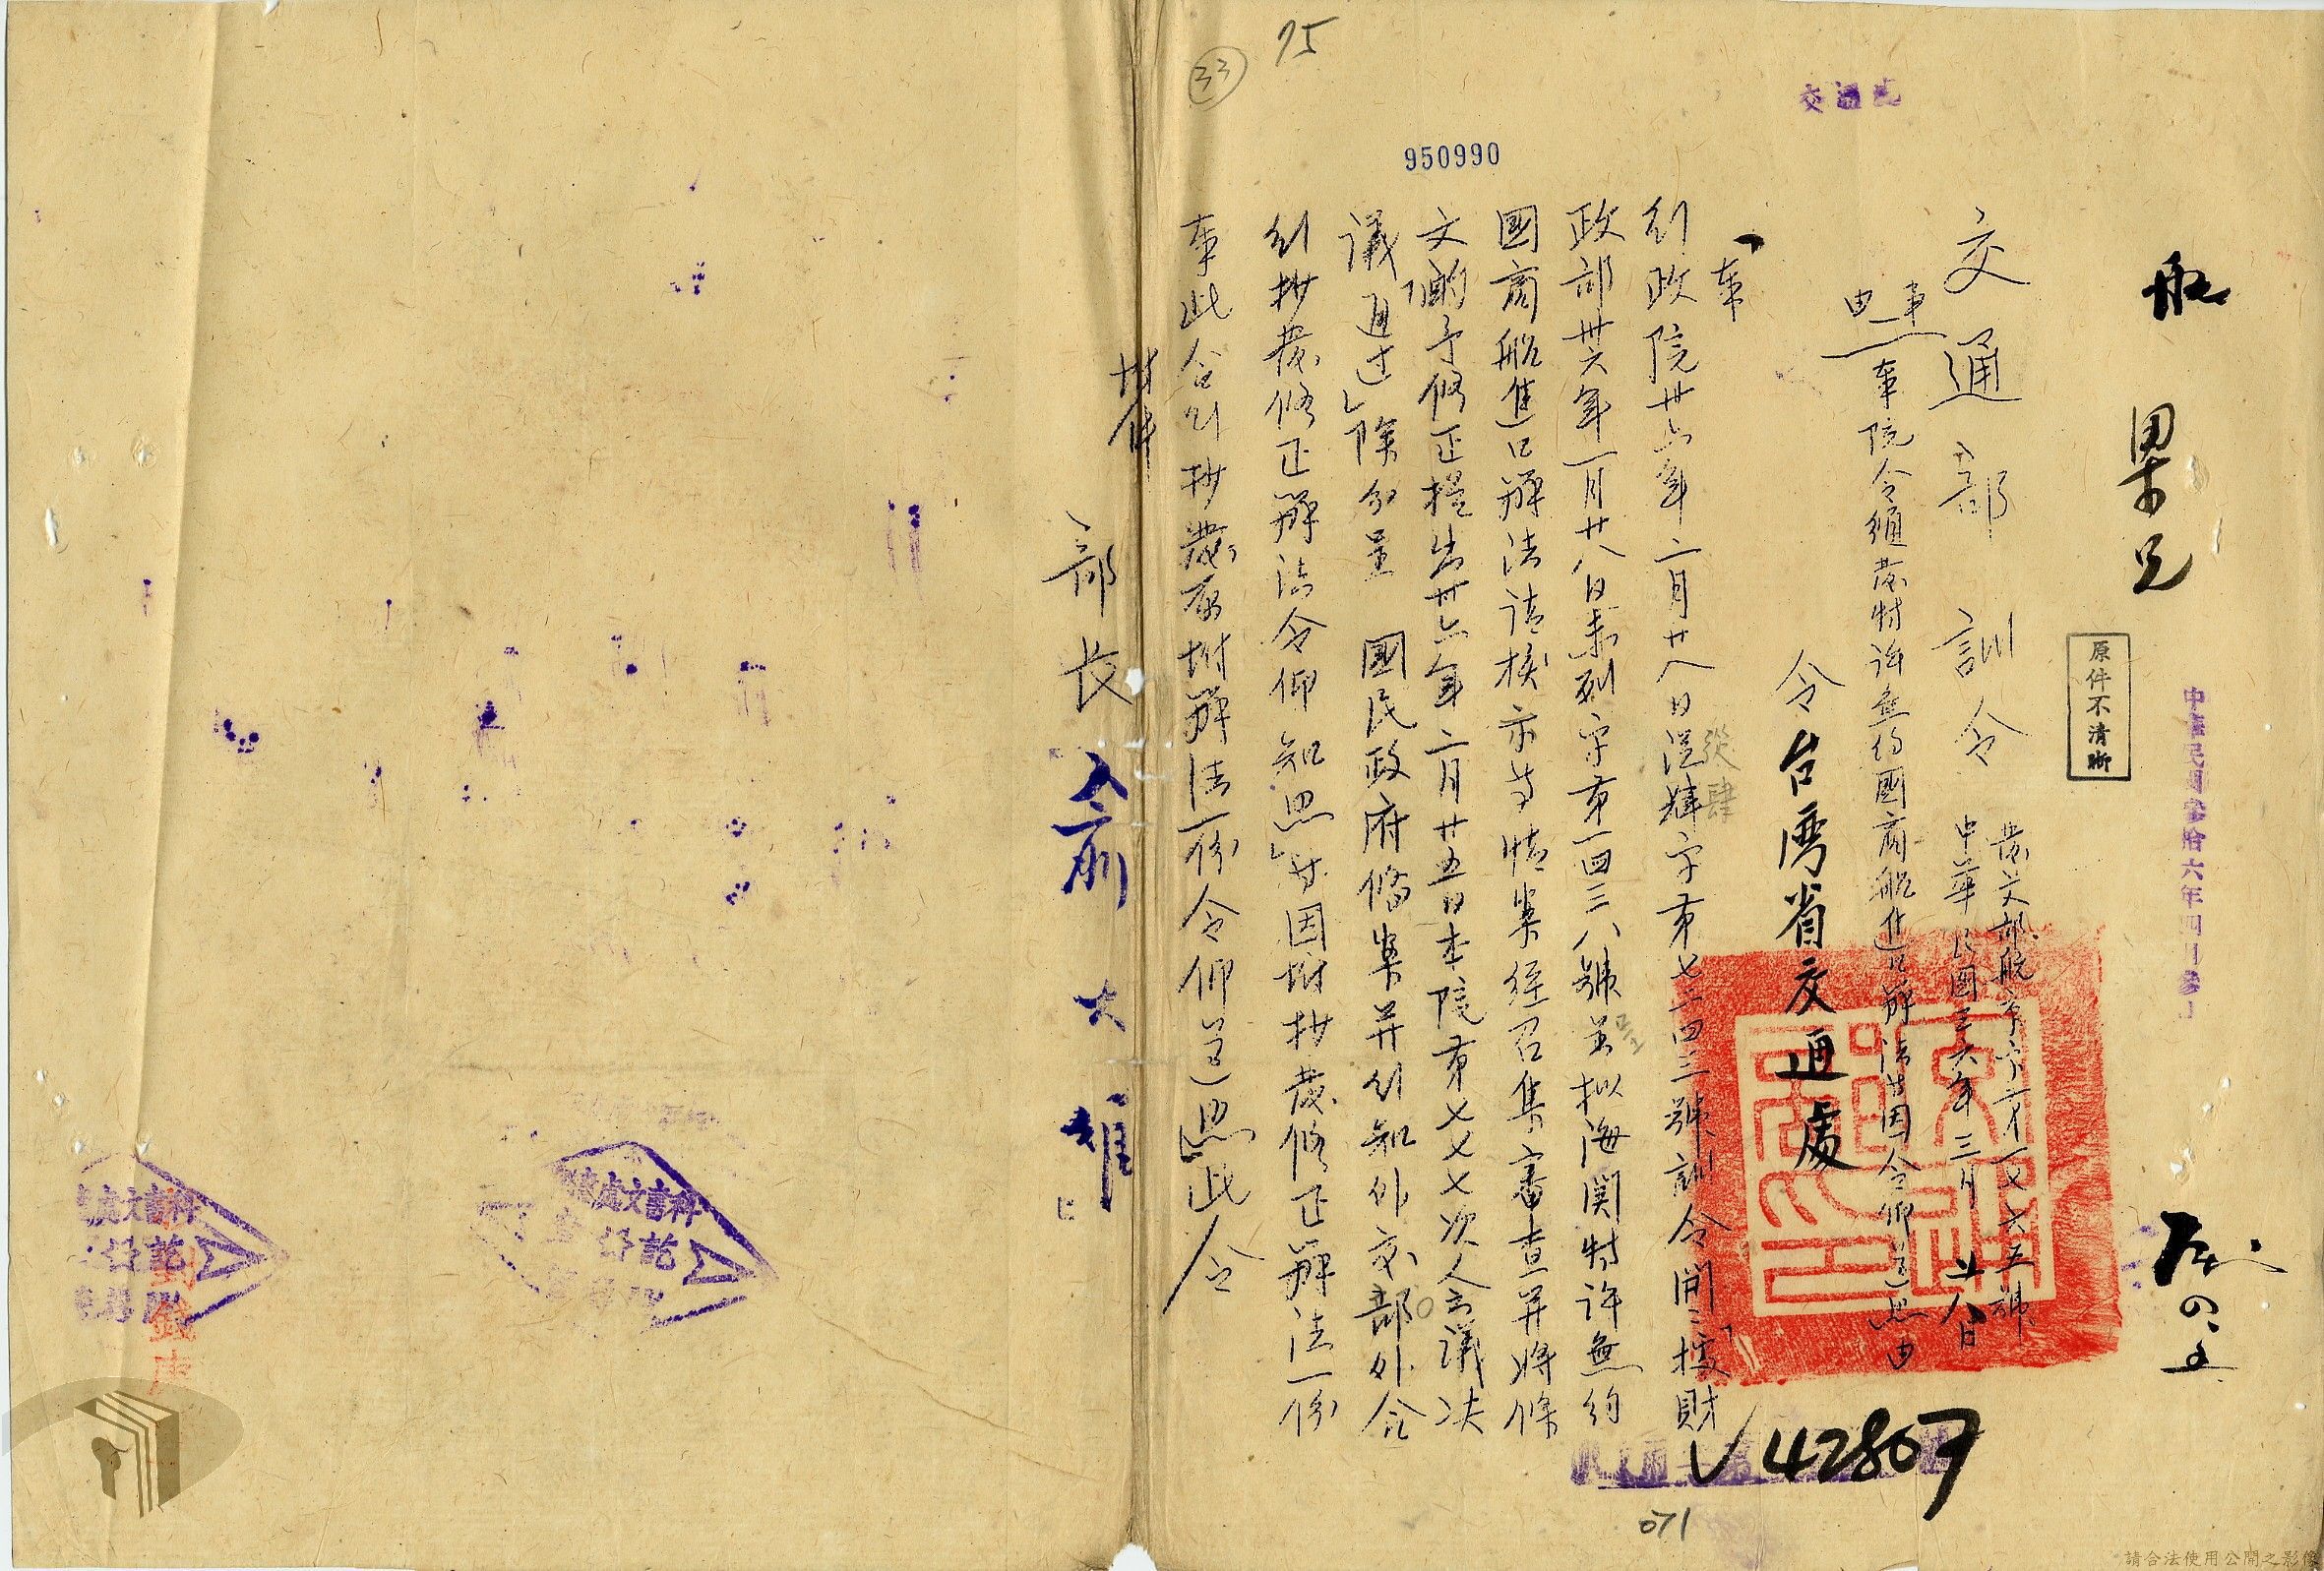 75
33
950990
交通處
航
果兄
原件不清晰
中華民國參拾六年四月參
交通部訓令
發文部航字第一七六五號
中華民國三六年三月廿八日
事由
奉院令頒發特許無約國商船進口辦法等因令仰遵照由
令台灣省交通處
奉
行政院卅六年二月廿八日從肆字第七二四三號訓令開:「據財
從肆
政部卅六年一月廿八日未列字第一四三八號呈擬海關特許無約
呈
國商船進口辦法請核示等情案經召集審查并將條
文酌予修正提出卅六年二月廿五日本院第七七七次會議決
議「通過」除分呈 國民政府備案并行知外交部外合
行抄發修正辦法令仰知照」等因附抄發修正辦法一份
奉此合行抄發原附辦法一份令仰遵照此令
附件
部長俞大維
42807
071
科書文處
請合法使用公開之影像